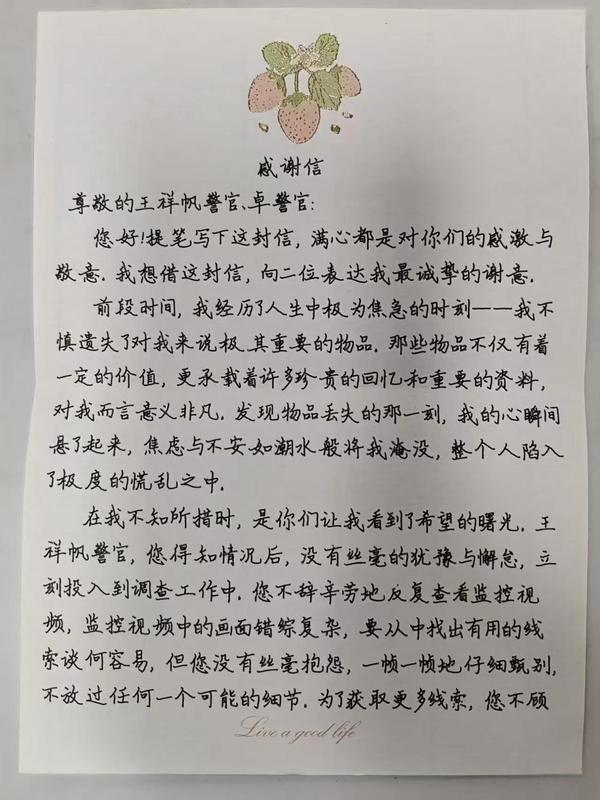 感谢信
尊敬的王祥帆警官、卓警官:
您好!提笔写下这封信,满心都是对你们的感激与
敬意.我想借这封信,向二位表达我最诚挚的谢意.
前段时间,我经历了人生中极为焦急的时刻——我不
慎遗失了对我来说极其重要的物品.那些物品不仅有着
一定的价值,更承载着许多珍贵的回忆和重要的资料,
对我而言意义非凡.发现物品丢失的那一刻,我的心瞬间
悬了起来,焦虑与不安如潮水般将我淹没,整个人陷入
了极度的慌乱之中.
在我不知所措时,是你们让我看到了希望的曙光.王
祥帆警官,您得知情况后,没有丝毫的犹豫与懈怠,立
刻投入到调查工作中.您不辞辛劳地反复查看监控视
频,监控视频中的画面错综复杂,要从中找出有用的线
索谈何容易,但您没有丝毫抱怨,一帧一帧地仔细甄别,
不放过任何一个可能的细节.为了获取更多线索,您不顾
Live a good life